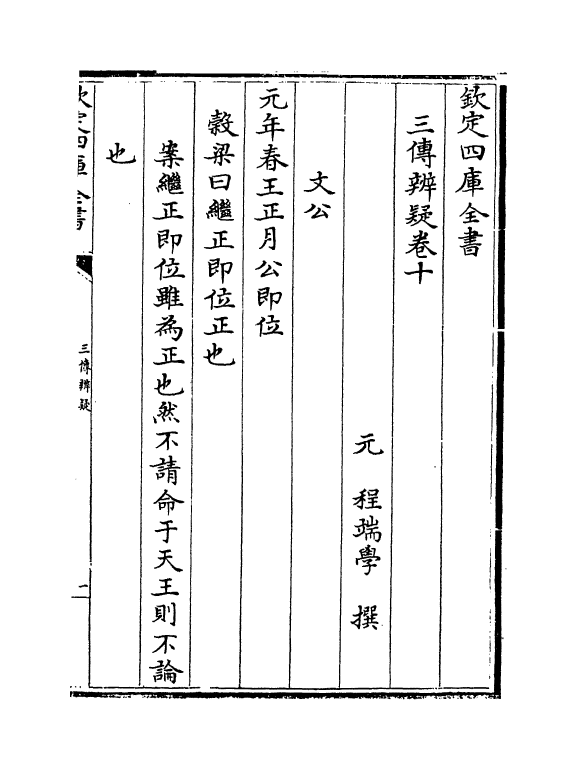 欽定四庫全書
三傳辨疑卷十
元　程端學　撰
文公
元年春王正月公即位
榖梁曰繼正即位正也
案繼正即位雖為正也然不請命于天王則不論
也
欽定四庫全書
三傳辨疑